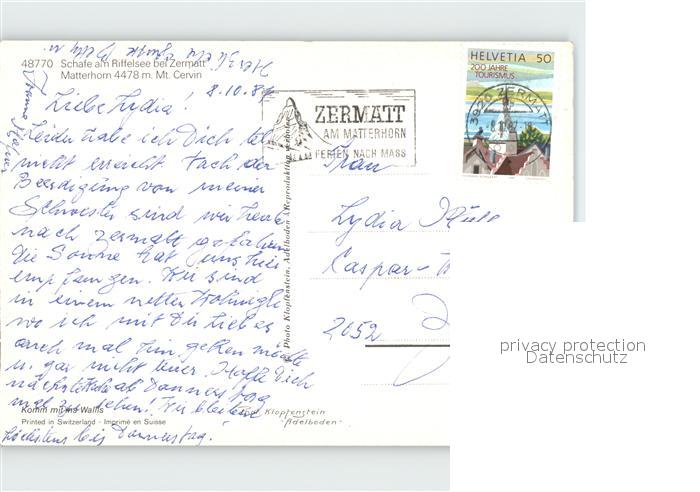 48770 Schafe am Riffelsee bei Zermatt
Matterhorn 4478 m. Mt. Cervin
8.10.87
Liebe Lydia!
Leider habe ich Dich tel.
nicht erreicht. Nach der
Beerdigung von meiner
Schwester sind wir heute
nach Zermatt gefahren
die Sonne hat uns hier
empfangen. Wir sind
in einem netten
wo ich mit Dir liebes
auch mal hin gehen möchte
u. gar nicht teuer. Hoffe Dich
nächstens ab Donnerstag
mal zu sehen! Wir bleiben
höchstens bis Donnerstag.
Komm mit ins Wallis
Printed in Switzerland - Imprimé en Suisse
Photo Klopfenstein, Adelboden
Klopfenstein
"Adelboden"
ZERMATT
AM MATTERHORN
FERIEN NACH MASS
HELVETIA 50
200 JAHRE
TOURISMUS
3920 ZERMATT
Frau
Lydia
Caspar-
2052
privacy protection
Datenschutz